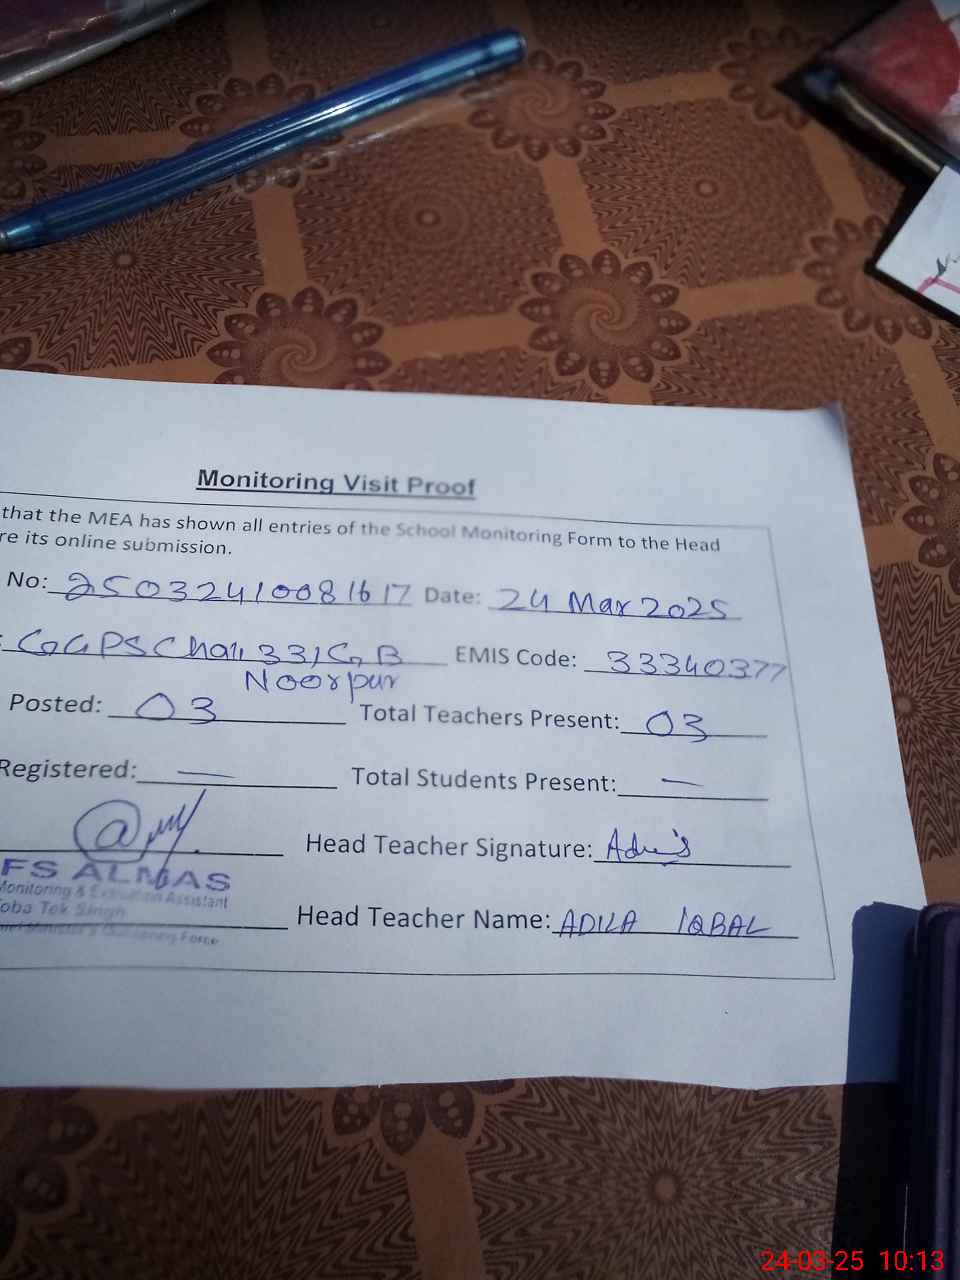 Monitoring Visit Proof
that the MEA has shown all entries of the School Monitoring Form to the Head
re its online submission.
No: 25032410081617 Date: 24 Mar 2025
: GGPS Chak 331 GB EMIS Code: 33340377
Noorpur
Posted: 03 Total Teachers Present: 03
Registered: — Total Students Present: —
Head Teacher Signature:
FS ALMAS
Monitoring & Evaluation Assistant
Toba Tek Singh
Head Teacher Name: ADILA IQBAL
Force
24-03-25 10:13